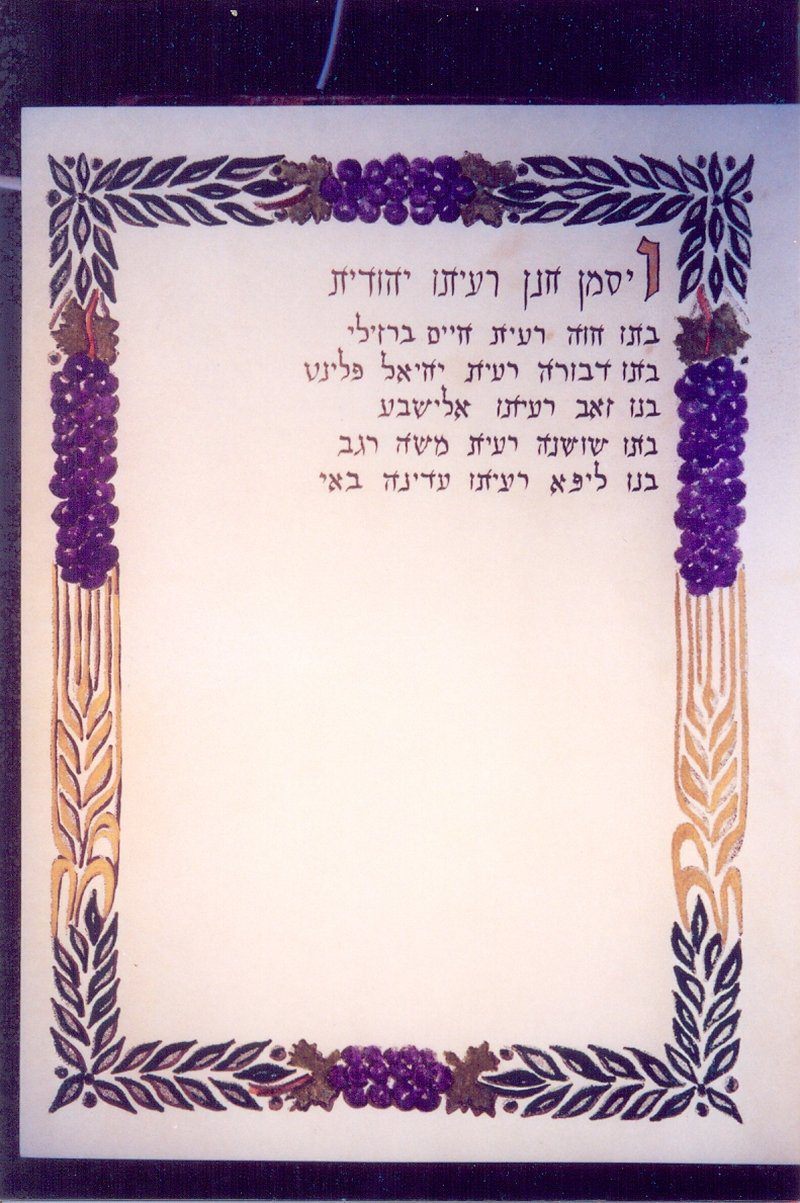 ויסמן חנן רעיתו יהודית
בתו חוה רעית חיים ברזילי
בתו דבורה רעית יחיאל פלינט
בנו זאב רעיתו אלישבע
בתו שושנה רעית משה רגב
בנו ליפא רעיתו עדינה באי